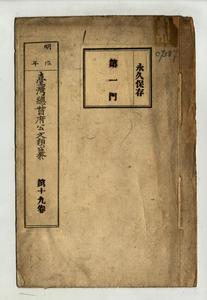 永久保存
第一門
明治
年
臺灣總督府公文類纂
第十九卷